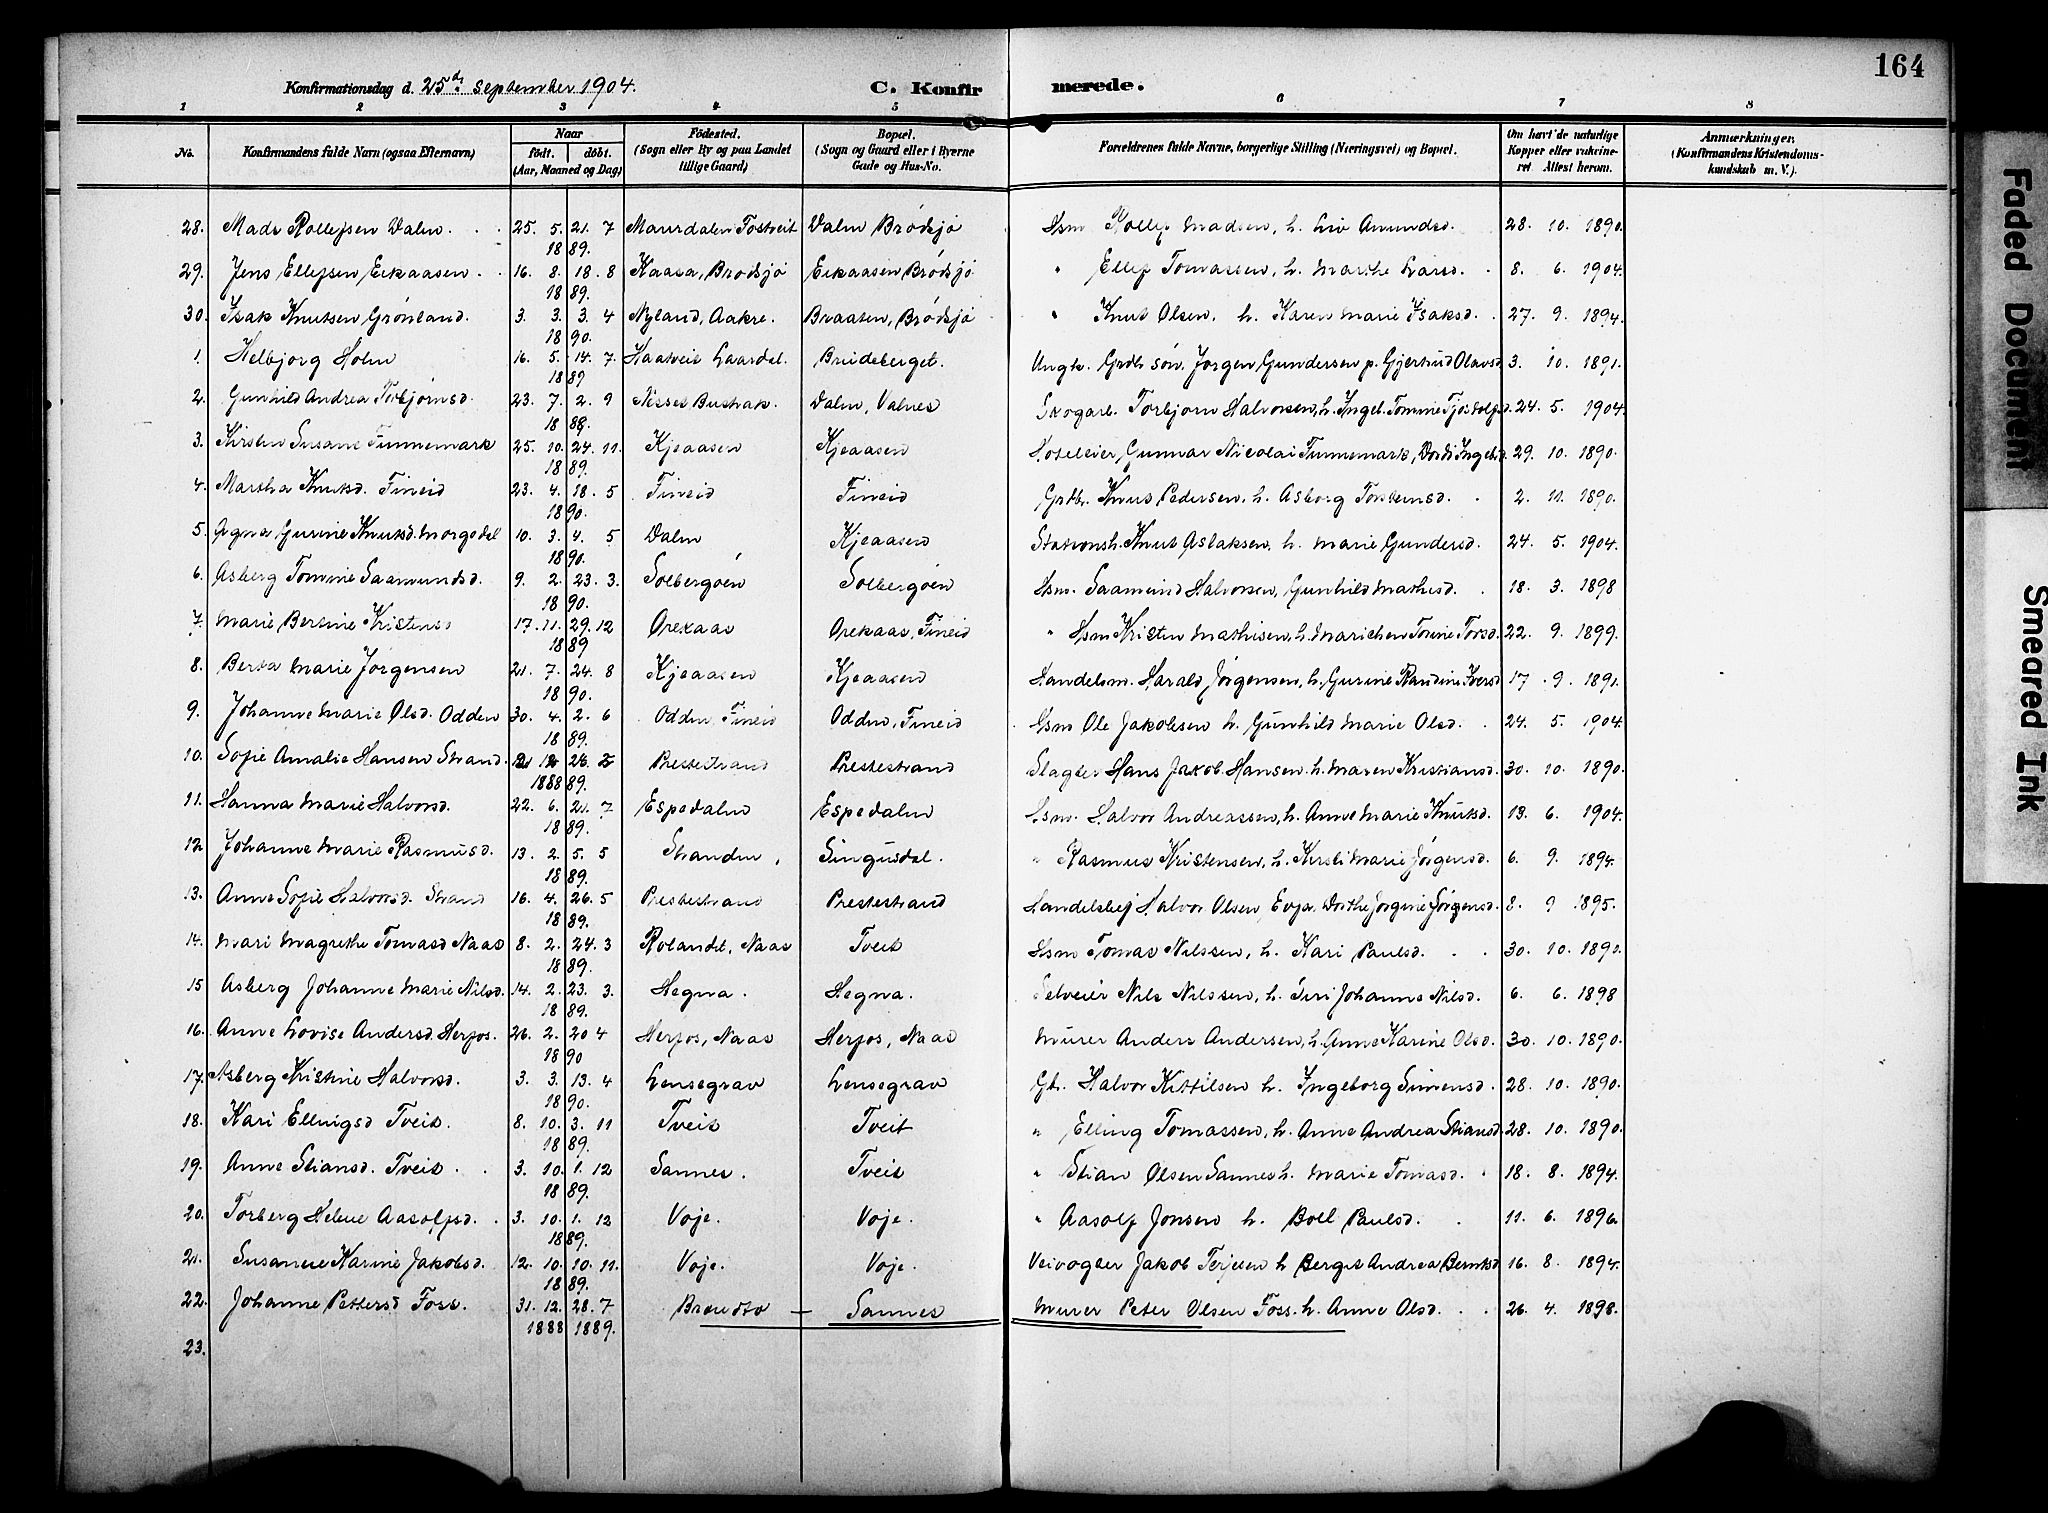 164
Konfirmationsdag d. 25d. september 1904. C. Konfirmerede.
1 2 3 4 5 6 7 8
No. Konfirmandens fulde Navn (ogsaa Efternavn) Naar født. døbt. (Aar, Maaned og Dag) Födested. (Sogn eller By og paa Landet tillige Gaard) Bopæl. (Sogn og Gaard eller i Byerne Gade og Hus-No. Forældrenes fulde Navne, borgerlige Stilling (Næringsvei) og Bopæl. Om havt de naturlige Kopper eller vakcineret Attest herom. Anmærkninger. (Konfirmandens Kristendomskundskab m. V.).
28. Mads Rollefsen Dalen. 25. 5. 21. 7 1889. Dalen Brödsjö Hsm Rollef Madsen, h. Liv Amundsd. 28. 10. 1890.
29. Jens Ellefsen, Eekaasen. 16. 8. 18. 8 1889. Kaasa, Brödsjö Eekaasen Brödsjö " Ellef Tomassen, h. Marthe Larsd. 8. 6. 1904.
30. Isak Knutsen Grönland. 3. 3. 3. 4 1890. Nyland, Aakre. Braaten, Brödsjö " Knut Olsen, h. Karen Marie Isaksd. 27. 9. 1894.
1. Helbjorg Holm 16. 5. 14. 7 1889 Haatveit Laardal. Brudeberget. Ungk. Grdb. sön. Jörgen Gundersen p. Gjertrud Olavsd 3. 10. 1891.
2. Gunhild Andrea Torbjörnsd. 23. 7. 2. 9 1889. Nisser Dalen, Valnes Skogarb. Torbjörn Halvorsen, h. Ingeb. Tomine 24. 5. 1904.
3. Kirsten Susane Tinnemark 25. 10. 24. 11. 1889. Kjeaasen Kjeaasen Hoteleier, Gunnar Nicolai Tinnemark, 29. 10. 1890.
4. Martha Knutsd. Fineid 23. 4. 18. 5 1890. Fineid Fineid Grdbr. Knut Pedersen, h. Asborg Torstensd. 2. 11. 1890.
5. Agna Gurine Knutsd. Morgedal 10. 3. 4. 5 1890. Dalen Kjeaasen Stationsh. Knut Aslaksen, h. Marie Gundersd. 24. 5. 1904.
6. Asberg Tomine Saamundsd. 9. 2. 23. 3. 1890. Solbergöen Solbergöen Hsm. Saamund Halvorsen, Gunhild Mathisd. 18. 3. 1898
7. Marie Bertine Kristens 17. 11. 29. 12 1889 Orekaas Orekaas, Fineid " Hsm Kristen Mathisen, h. Marichen Tomine Torsd. 22. 9. 1899.
8. Berta Marie Jörgensen 21. 7. 24. 8 1890. Kjeaasen Kjeaasen Handelsm. Harald Jörgensen, h. Gurine Randine Iversd 17. 9. 1891.
9. Johanne Marie Olsd. Odden 30. 4. 2. 6 1889. Odden, Fineid Odden, Fineid Hsm Ole Jakobsen h. Gunhild Marie Olsd. 24. 5. 1904.
10. Sofie Amalie Hansen Strand. 26. 2 1888 89. Prestestrand Prestestrand Slagter Hans Jakob Hansen. h. Maren Kristiansd. 30. 10. 1890.
11. Hanna Marie Halvorsd. 22. 6. 21. 7 1889. Espedalen Espedalen Hsm. Halvor Andreassen, h. Anne Marie Knutsd. 13. 6. 1904.
12 Johanne Marie Rasmusd. 13. 2. 5. 5 1889. Stranden, Singusdal. " Rasmus Kristensen, h. Kirsti Marie Jörgensd. 6. 9. 1894.
13. Anne Sofie Halvorsd. Strand 16. 4. 26. 5 1889. Prestestrand Prestestrand Handelsbetj Halvor Olsen, Eva Dorthe Jörgine Jörgensd. 8. 9 1895.
14. Mari Magrethe Tomasd Naas 8. 2. 24. 3 1889. Rolandet, Naas Tveit Hsm Tomas Nilssen, h. Kari Paulsd. 30. 10. 1890.
15 Asberg Johanne Marie Nilsd. 14. 2. 23. 3. 1889. Hegna. Hegna. Selveier Nils Nilssen, h. Siri Johanne Nilsd. 6. 6. 1898
16. Anne Lovise Andersd. Herfos. 26. 2. 20 4 1890 Herfos, Naas Herfos, Naas Murer Anders Andersen, h. Anne Karine Olsd. 30. 10. 1890.
17. Asberg Kristine Halvorsd. 3. 3. 13. 4 1890. Lensegrav Lensegrav Gb. Halvor Kittilsen h. Ingeborg Simensd. 28. 10. 1890.
18. Kari Ellingsd Tveit. 8. 10. 3. 11 1889. Tveit Tveit " Elling Tomassen, h. Anne Andrea Stiansd. 28. 10. 1890.
19. Anne Stiansd. Tveit. 3. 10. 1. 12 1889. Sannes. Tveit " Stian Olsen Sannes h. Marie Tomasd. 18. 8. 1894.
20. Torberg Helene Aasolfsd. 3. 10. 1. 12 1889. Voje. Voje. " Aasolf Jonsen h. Boll Paulsd. 11. 6. 1896.
21. Susanne Karine Jakobsd. 12. 10. 10. 11. 1889. Voje. Voje. Veivogter Jakob Terjesen h Bergit Andrea Berntsd 16. 8. 1894.
22. Johanne Pettersd Foss. 31. 12. 28. 7 1888 1889. Sannes Murer Peter Olsen Foss. h. Anne Olsd. 26. 4. 1898.
23.
Faded Document
Smeared Ink